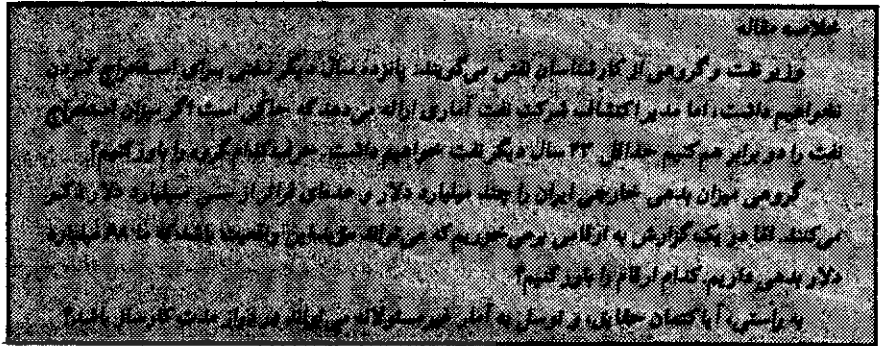 خلاصه مقاله
وزیر نفت و گروهی از کارشناسان نفتی می‌گویند، پانزده سال دیگر نفتی برای استخراج کردن
نخواهیم داشت، اما مدیر اکتشاف شرکت نفت آماری ارائه می‌دهد که حاکی است اگر میزان استخراج
نفت را دو برابر هم کنیم حداقل ۲۳ سال دیگر نفت خواهیم داشت. حرف کدام گروه را باور کنیم؟
گروهی میزان بدهی خارجی ایران را چند میلیارد دلار و عده‌ای فراتر از سی میلیارد دلار ذکر
می‌کنند. امّا در یک گزارش به ارقامی برمی‌خوریم که می‌تواند مؤید این واقعیت باشد که ما میلیارد
دلار بدهی داریم. کدام ارقام را باور کنیم؟
به راستی، آیا کتمان حقایق، و توسل به آمار غیرمسئولانه می‌تواند در دراز مدت کارساز باشد؟